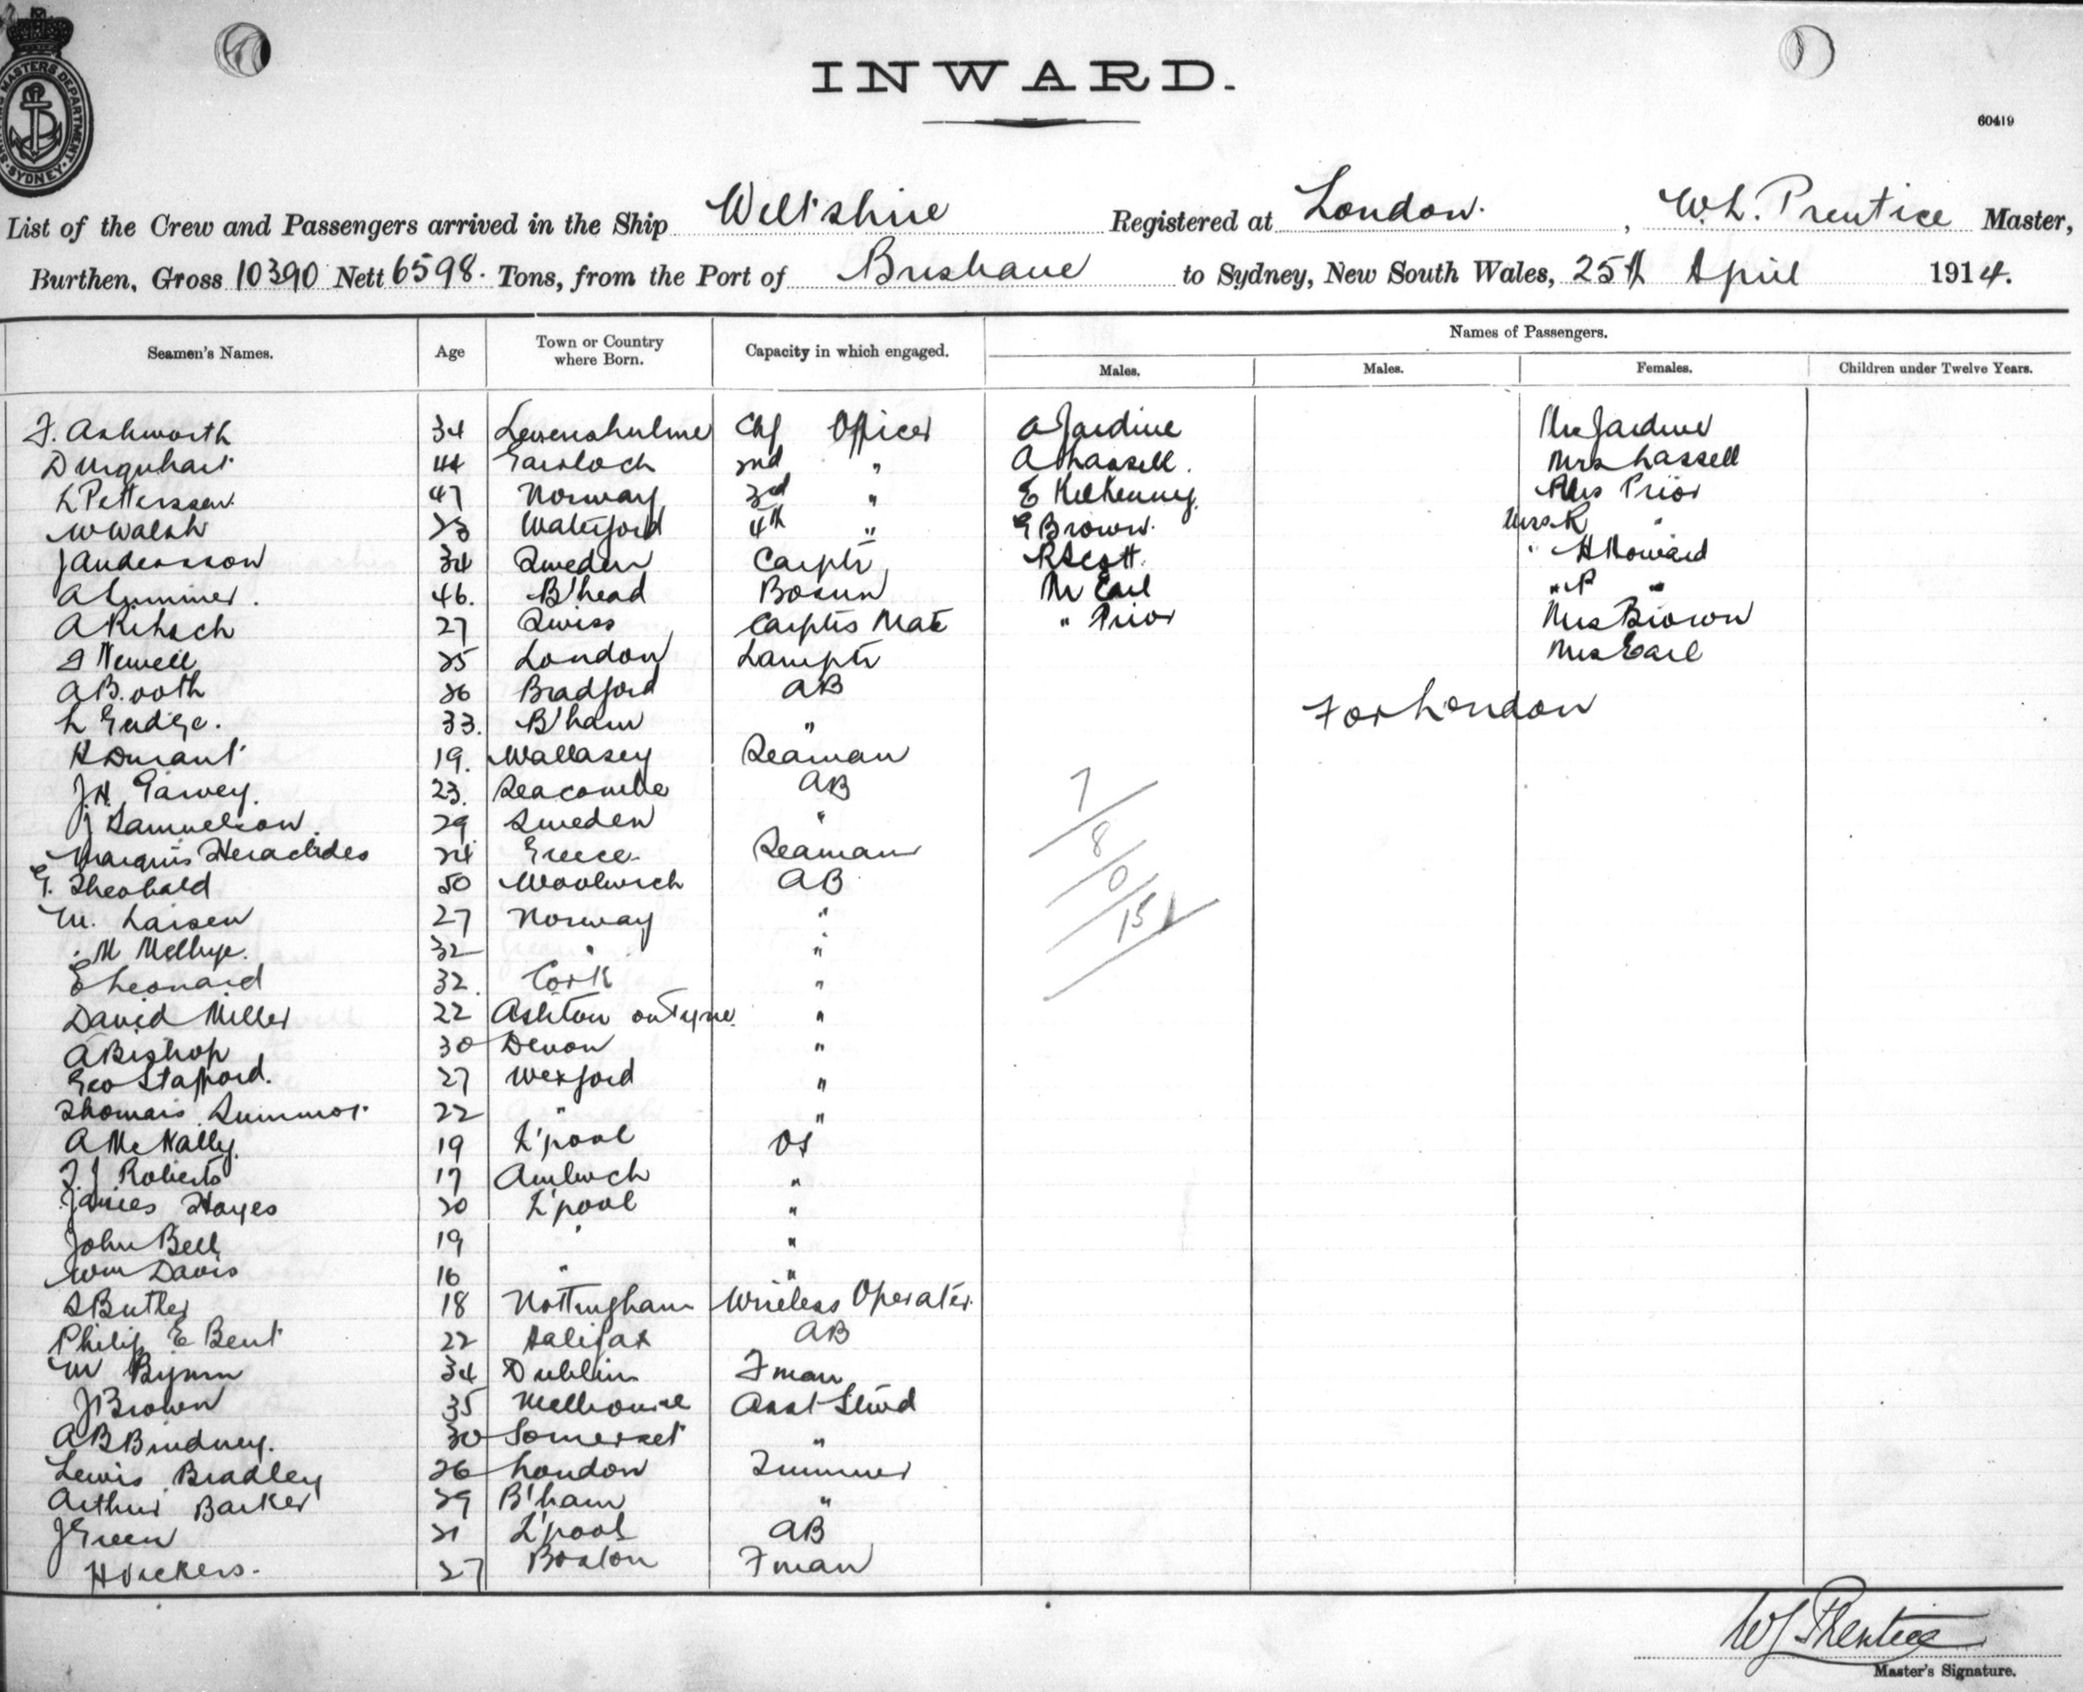 SHIPPING MASTERS DEPARTMENT SYDNEY
INWARD.
60419
List of the Crew and Passengers arrived in the Ship Wiltshire Registered at London. , W.L. Prentice Master,
Burthen, Gross 10390 Nett 6598. Tons, from the Port of Brisbane to Sydney, New South Wales, 25th April 1914.
Names of Passengers.
Seamen's Names. Age Town or Country where Born. Capacity in which engaged. Males. Males. Females. Children under Twelve Years.
F. Ashworth 34 Levenshulme Chf Officer A Jardine Mrs Jardine
D Urquhart 44 Gairloch 2nd " A Lassell. Mrs Lassell
L Petterssen 47 Norway 3rd " E Kilkenny Mrs Prior
W Walsh 23 Waterford 4th " G Brown. Miss R "
J Andersson 34 Sweden Carptr R Scott. " H Howard
A Summer. 46. B'head Bosun Mr Earl " P "
A 27 Swiss Carptrs Mate " Prior Mrs Brown
Newell 25 London Lamptr Mrs Earl
A B.ooth 26 Bradford AB
For London
L 33. B'ham "
H Durant 19. Wallasey Seaman
J.H. Garvey. 23. Seacombe AB
J Samuelson. 29 Sweden "
Marquis Heraclides 24 Greece Seaman
G. Theobald 50 Woolwich AB
M. Larsen 27 Norway "
M 32 " "
E Leonard 32. Cork "
David Miller 22 Ashton on Tyne "
A Bishop 30 Devon "
Geo Stafford. 27 Wexford "
Thomas Summer 22 " "
A McNally. 19 L'pool OS
F.J. Roberts 17 Amlwch "
James Hayes 20 L'pool "
John Bell 19 " "
Wm Davis 16 " "
S Butler 18 Nottingham Wireless Operator.
Philip E Bent 22 Halifax AB
W Byrne 34 Dublin Fman
J Brown 35 Melbourne Asst Stwd
A B 30 Somerset "
Lewis Bradley 26 London Trimmer
Arthur Barker 29 B'ham "
J Green 21 L'pool AB
H Vickers. 27 Boston Fman
7/8/0/15
WL Prentice
Master's Signature.